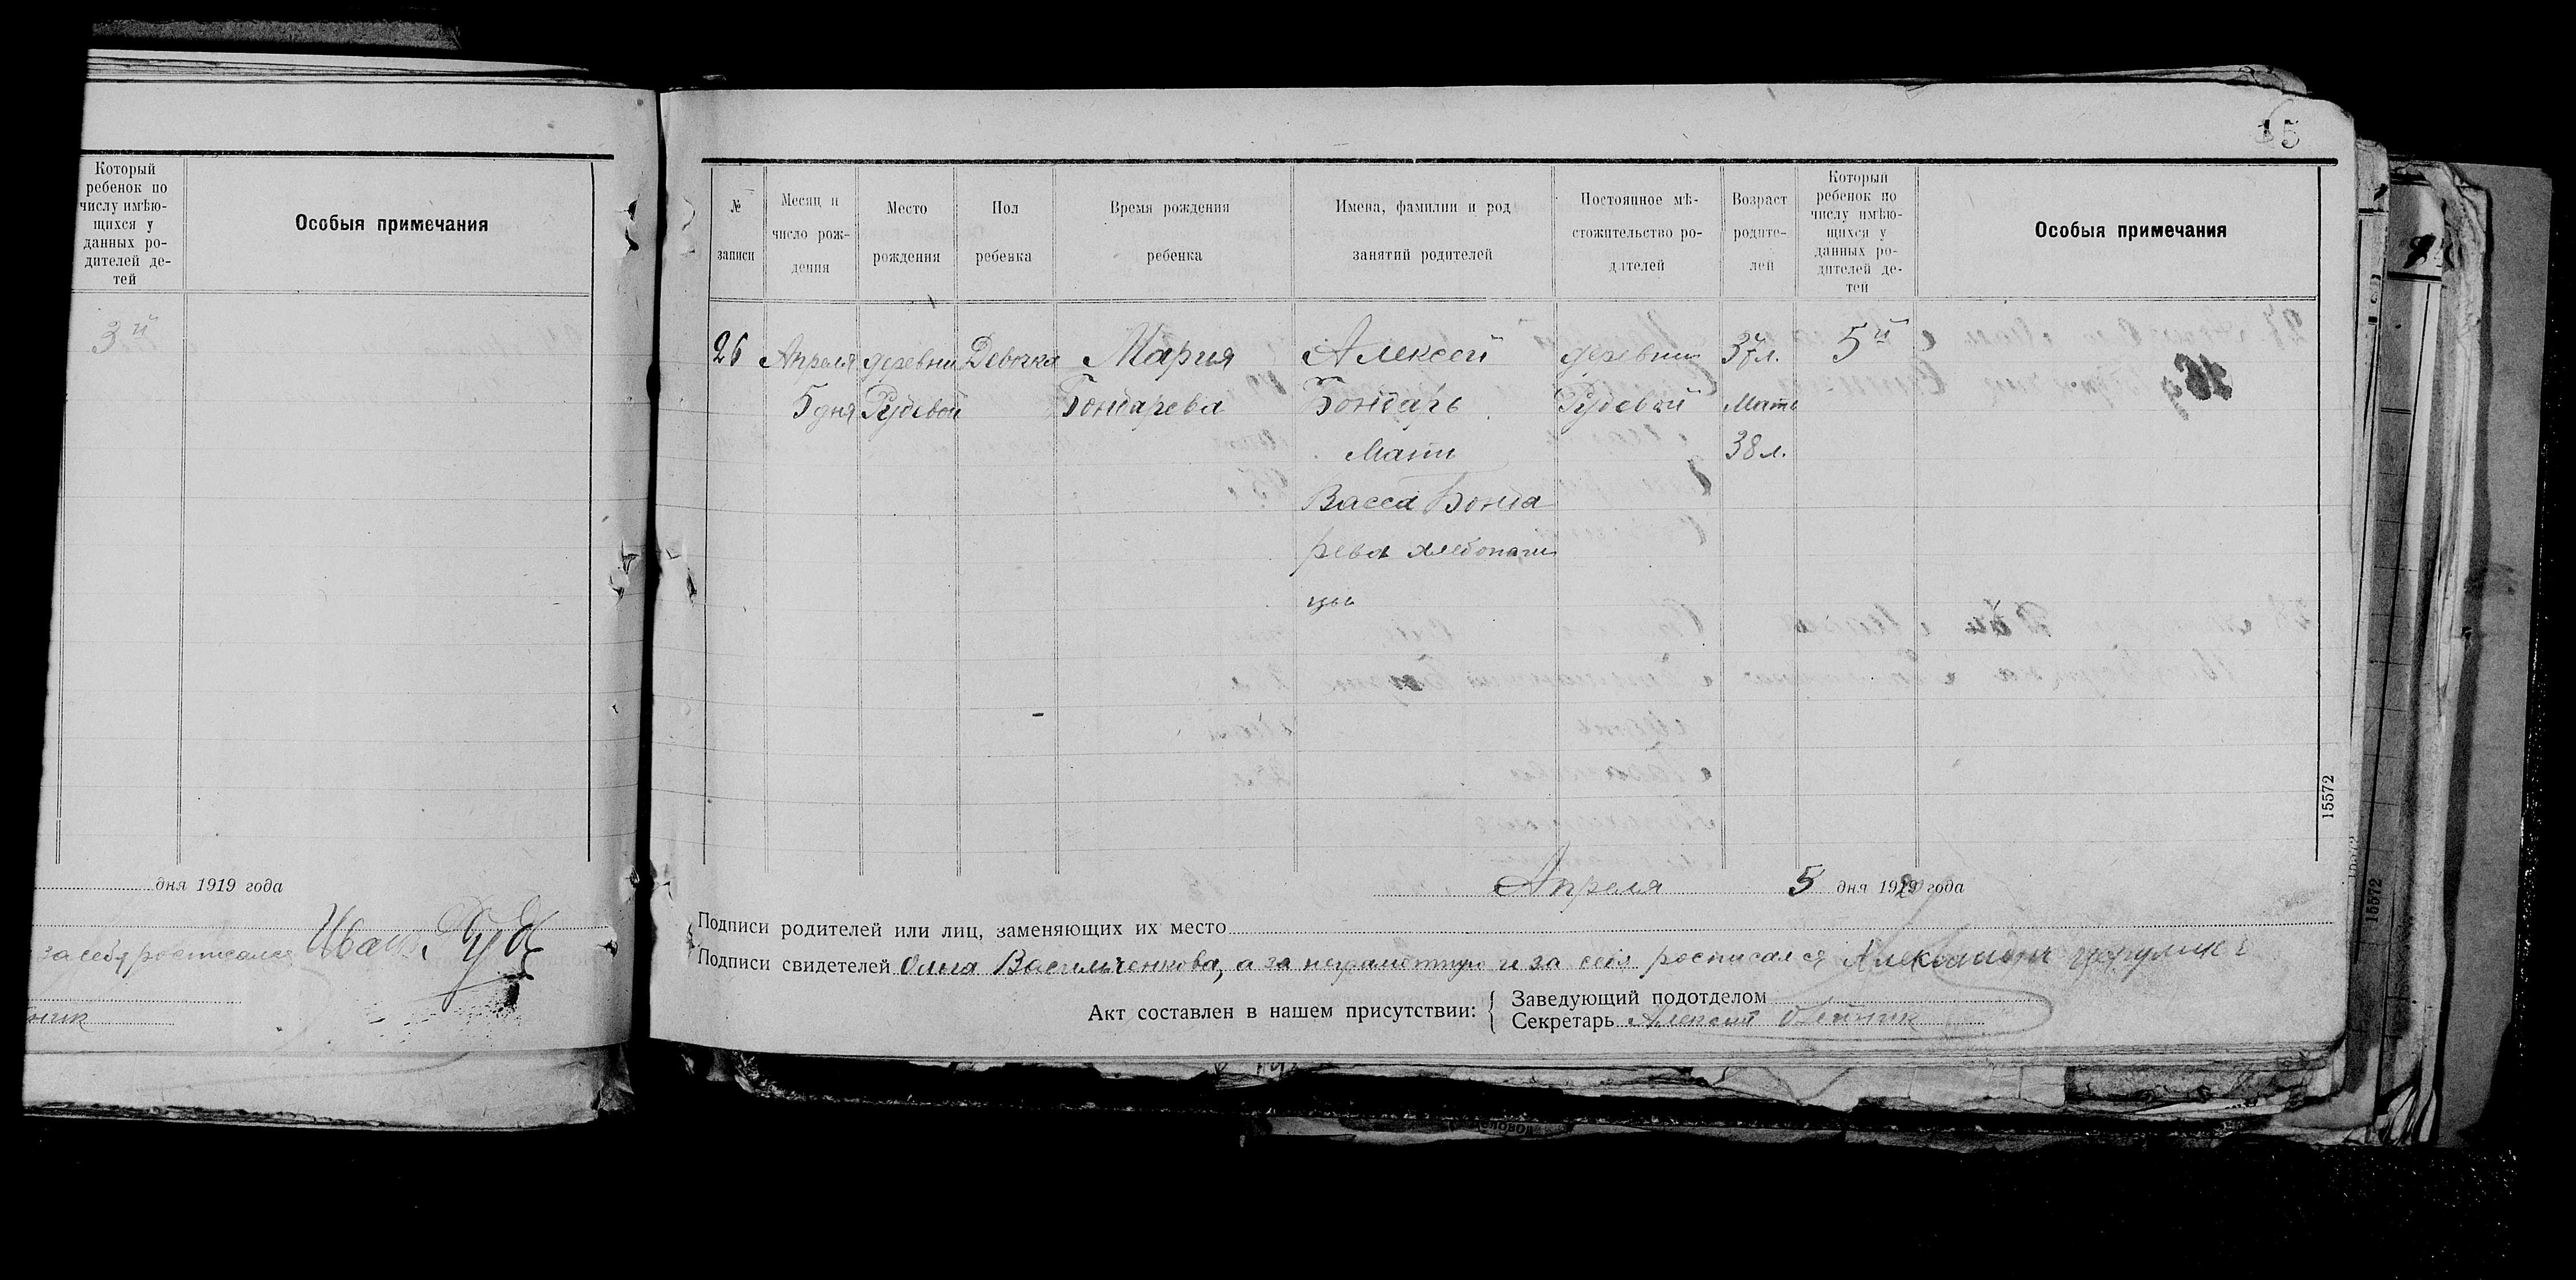 Который
ребенок по
числу имѣю-
щихся у
данных ро-
дителей де-
тей
Особыя примечания
3й
дня 1919 года
за себя росписался Иван
15
№
записи
Месяц и
число рож-
дения
Место
рождения
Пол
ребенка
Время рождения
ребенка
Имена, фамилии и род
занятий родителей
Постоянное мѣ-
стожительство ро-
дителей
Возраст
родите-
лей
Который
ребенок по
числу имѣю-
щихся у
данных ро-
дителей де-
теи
Особыя примечания
26 Апреля деревни Девочка Мария Алексей деревни 37л. 5й
5 дня Рудевой Бондарева Бондарь Рудевой Мать
Мати 38 л.
Васса Бонда
рева хлебопаш
цы
15572
Апреля 5 дня 1919 года
Подписи родителей или лиц, заменяющих их место
Подписи свидетелей Олна Васильченкова, а за неграмотную и за себя росписался Александр
Акт составлен в нашем присутствии:
Заведующий подотделом
Секретарь Алексей Олейник
15572